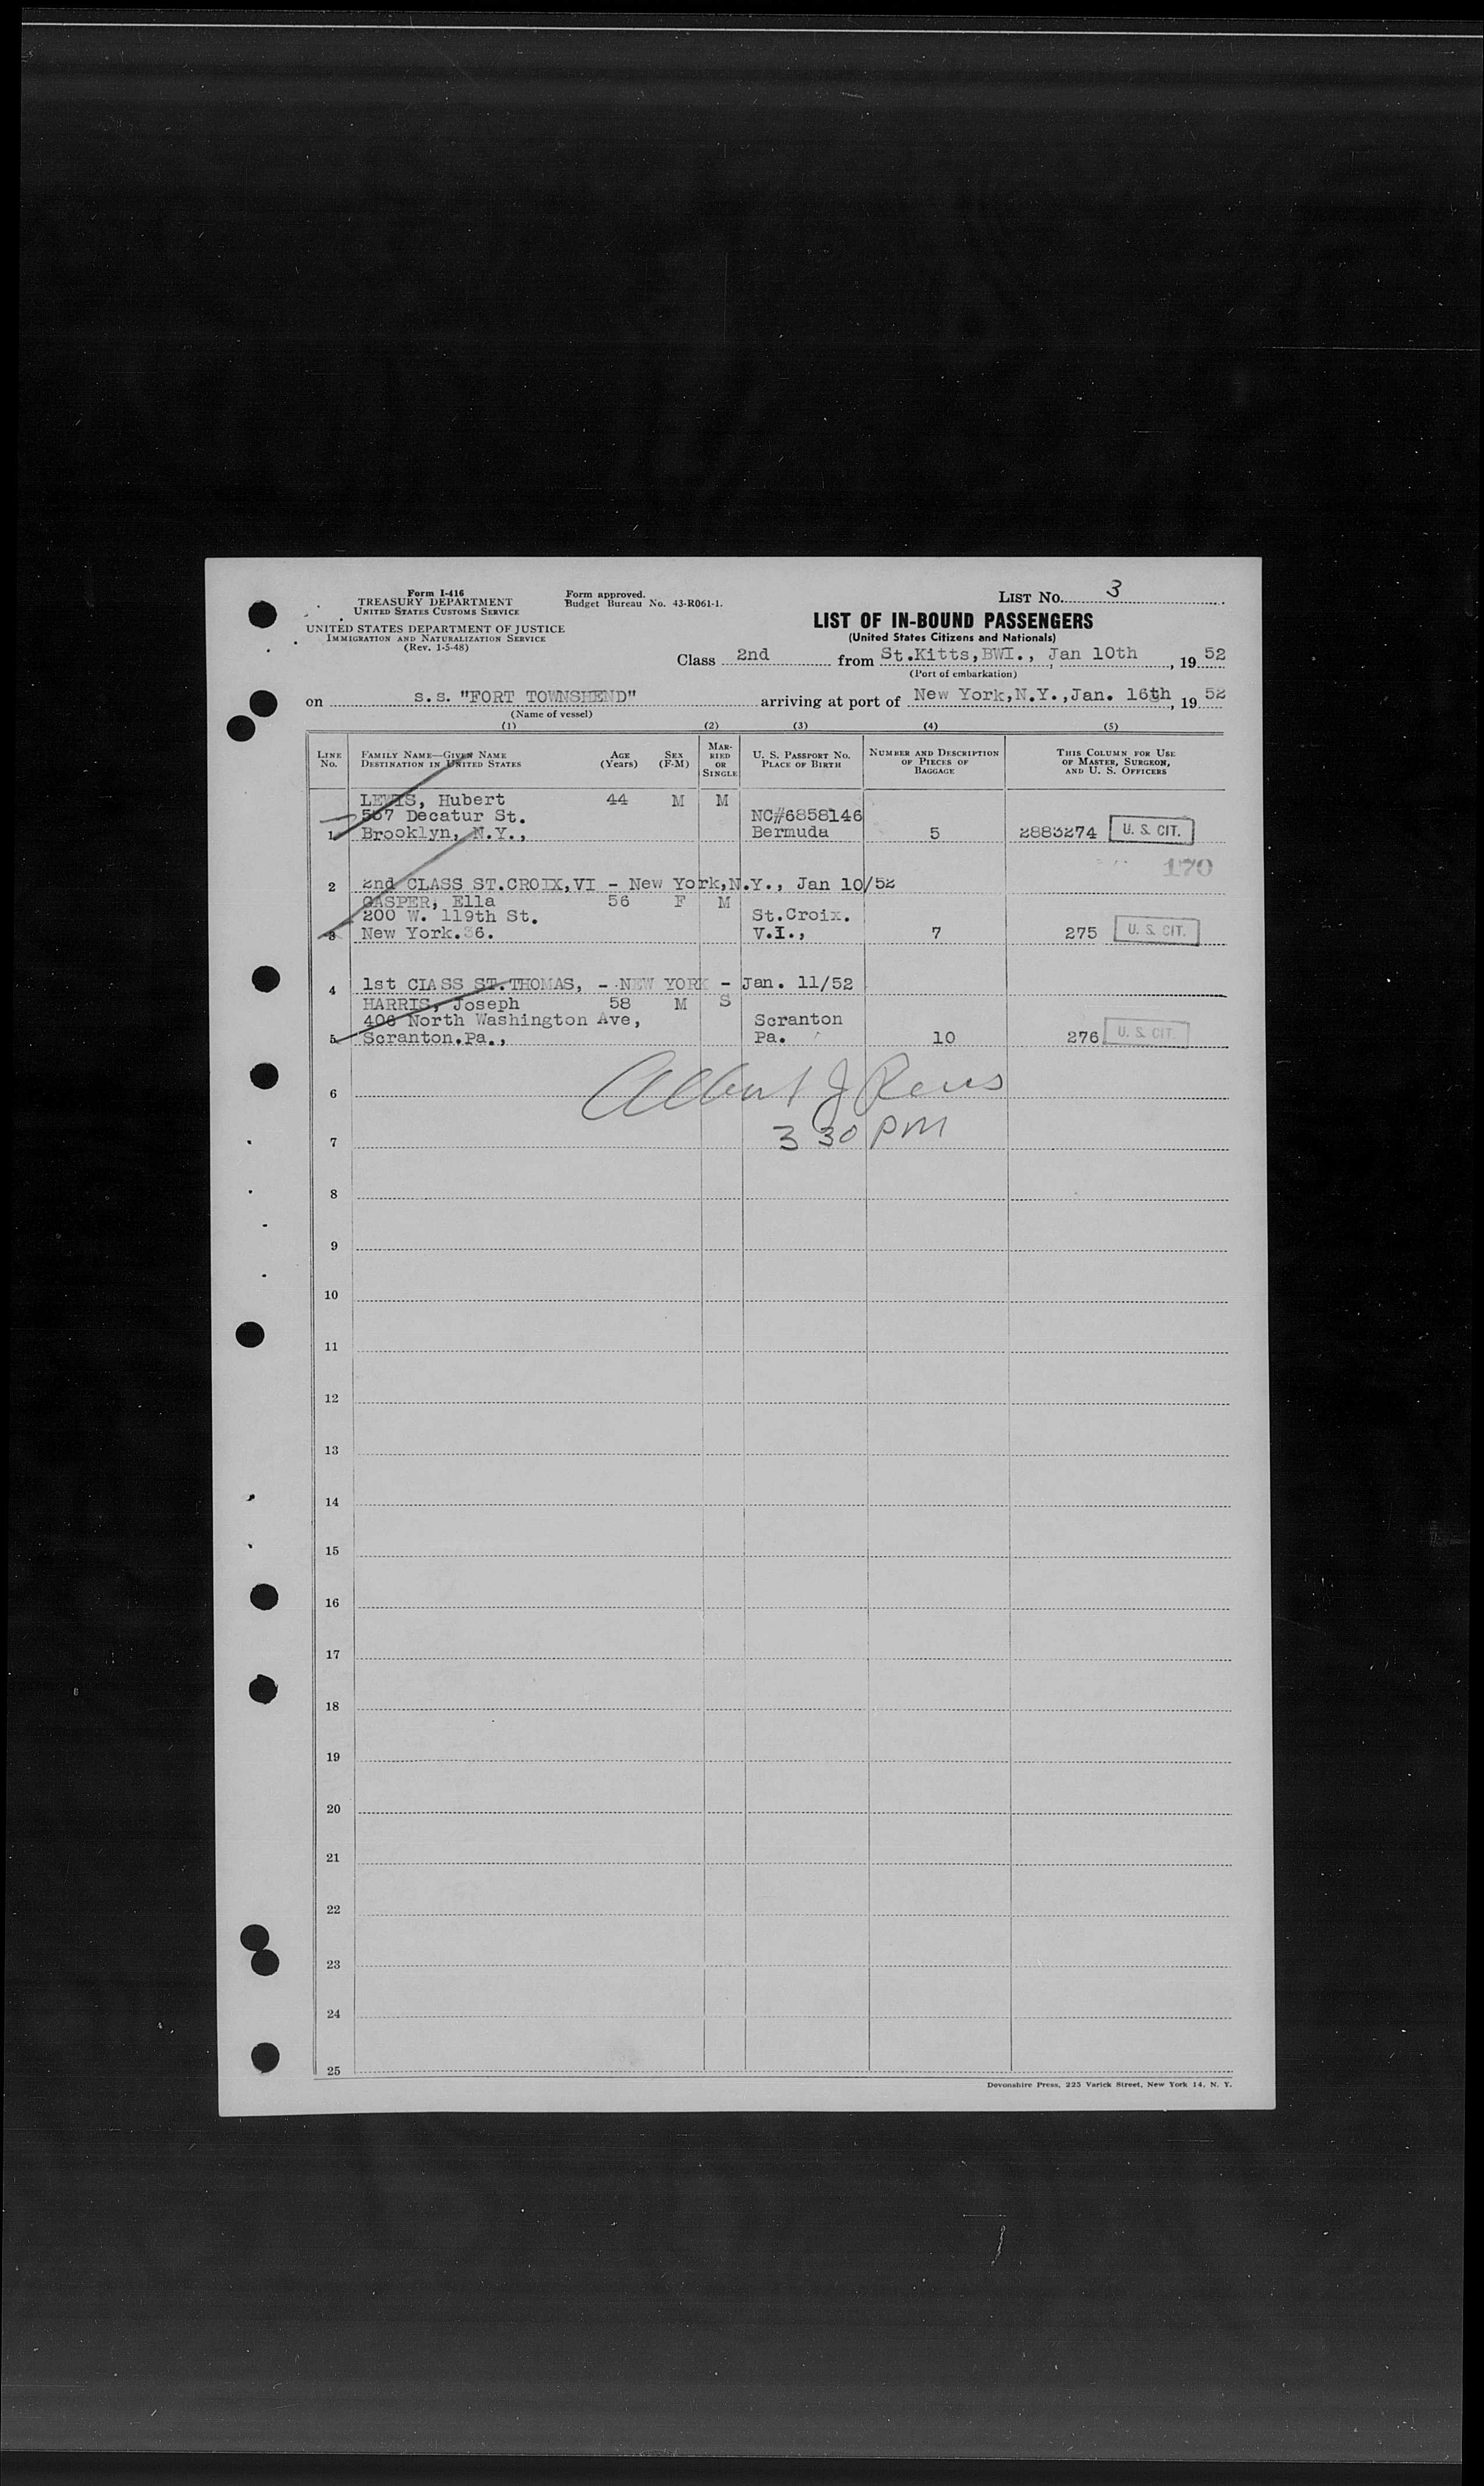 Form I-416
TREASURY DEPARTMENT
UNITED STATES CUSTOMS SERVICE
UNITED STATES DEPARTMENT OF JUSTICE
IMMIGRATION AND NATURALIZATION SERVICE
(Rev. 1-5-48)
Form approved.
Budget Bureau No. 43-R061-1.
LIST No. 3
LIST OF IN-BOUND PASSENGERS
(United States Citizens and Nationals)
Class 2nd from St.Kitts,BWI., Jan 10th, 1952
(Port of embarkation)
on s.s. "FORT TOWNSHEND" arriving at port of New York,N.Y.,Jan. 16th, 1952
(Name of vessel)
(1) (2) (3) (4) (5)
LINE No. FAMILY NAME—GIVEN NAME DESTINATION IN UNITED STATES AGE (Years) SEX (F-M) MARRIED OR SINGLE U. S. PASSPORT NO. PLACE OF BIRTH NUMBER AND DESCRIPTION OF PIECES OF BAGGAGE THIS COLUMN FOR USE OF MASTER, SURGEON, AND U. S. OFFICERS
LEWIS, Hubert 44 M M
567 Decatur St. NC#6858146
1 Brooklyn, N.Y., Bermuda 5 2883274 U. S. CIT.
170
2 2nd CLASS ST.CROIX,VI - New York,N.Y., Jan 10/52
GASPER, Ella 56 F M
200 W. 119th St. St.Croix.
3 New York.36. V.I., 7 275 U. S. CIT.
4 1st CLASS ST.THOMAS, - NEW YORK - Jan. 11/52
HARRIS, Joseph 58 M S
406 North Washington Ave, Scranton
5 Scranton.Pa., Pa. 10 276 U. S. CIT.
6 Albert J
7 3 30 PM
8
9
10
11
12
13
14
15
16
17
18
19
20
21
22
23
24
25
Devonshire Press, 225 Varick Street, New York 14, N. Y.